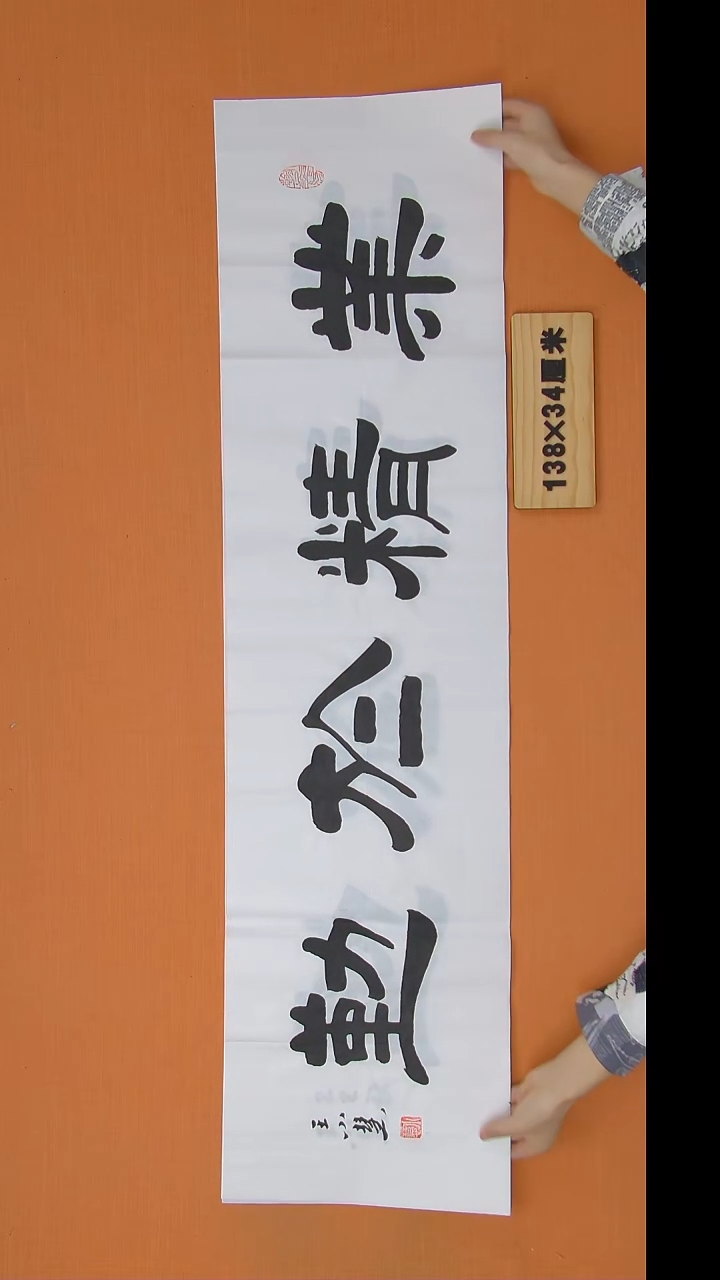 業精於勤
王小慧
138×34厘米